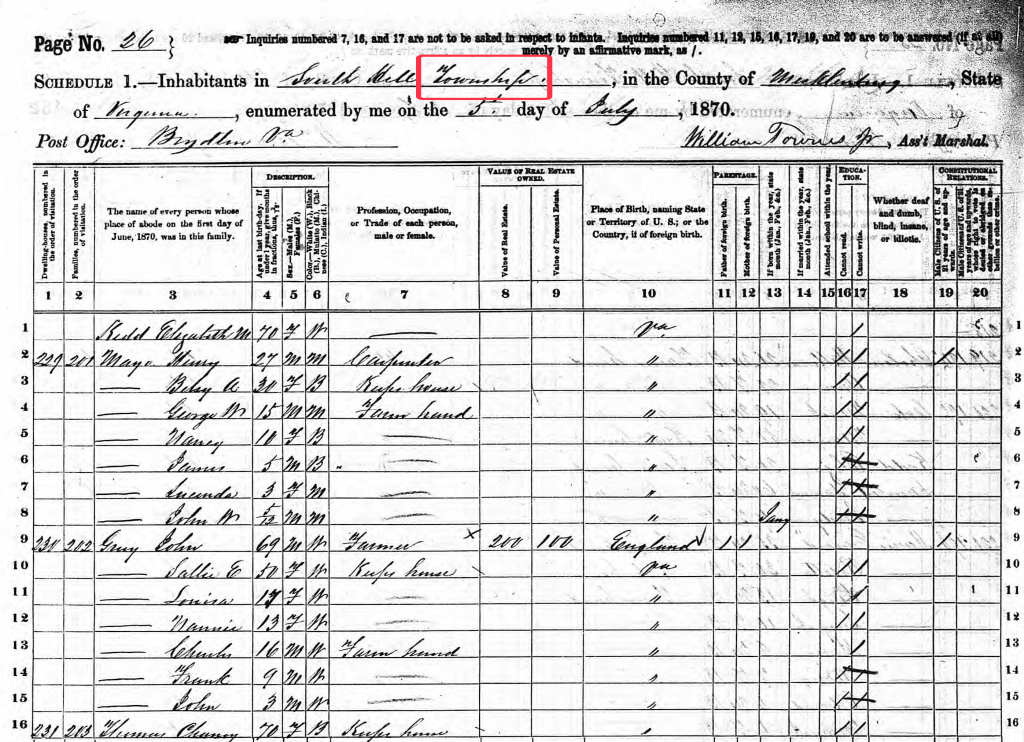 Page No. 26 } Inquiries numbered 7, 16, and 17 are not to be asked in respect to infants. Inquiries numbered 11, 12, 15, 16, 17, 19, and 20 are to be answered (if at all)
merely by an affirmative mark, as /.
SCHEDULE 1.—Inhabitants in South Hill Township, in the County of Mecklenburg, State
of Virginia, enumerated by me on the 5 day of July, 1870.
Post Office: Boydton Va William Townes Jr, Ass't Marshal.
Dwelling-houses, numbered in the order of visitation. Families, numbered in the order of visitation. The name of every person whose place of abode on the first day of June, 1870, was in this family. DESCRIPTION. Age at last birth-day. If under 1 year, give months in fractions, thus, Sex.—Males (M.), Females (F.) Color.—White (W.), Black (B.), Mulatto (M.), Chinese (C.), Indian (I.) Profession, Occupation, or Trade of each person, male or female. VALUE OF REAL ESTATE OWNED. Value of Real Estate. Value of Personal Estate. Place of Birth, naming State or Territory of U. S.; or the Country, if of foreign birth. PARENTAGE. Father of foreign birth. Mother of foreign birth. If born within the year, state month (Jan., Feb., &c.) If married within the year, state month (Jan., Feb., &c.) Attended school within the year. EDUCATION. Cannot read. Cannot write. Whether deaf and dumb, blind, insane, or idiotic. CONSTITUTIONAL RELATIONS. Male Citizens of U. S. of 21 years of age and upwards.
1 2 3 4 5 6 7 8 9 10 11 12 13 14 15 16 17 18 19 20
1 Kidd Elizabeth M 70 F W Va / 1
2 229 201 Mayo Henry 27 M M Carpenter " / / / 2
3 Betsy A 30 F B Keeps house " / / 3
4 George W 15 M M Farm hand " / / 4
5 Nancy 10 F B " / / 5
6 James 5 M B " 6
7 Lucinda 3 F M " 7
8 John W 5/12 M M " Jany 8
9 230 202 Gray John 69 M W Farmer X 200 100 England / / / 9
10 Sallie E 50 F W Keeps house Va / / 10
11 Louisa 17 F W " / 11
12 Nannie 13 F W " / / 12
13 Charles 16 M W Farm hand " / 13
14 Frank 9 M W " 14
15 John 3 M W " 15
16 231 203 Thomas Chaney 70 F B Keeps house " / / 16